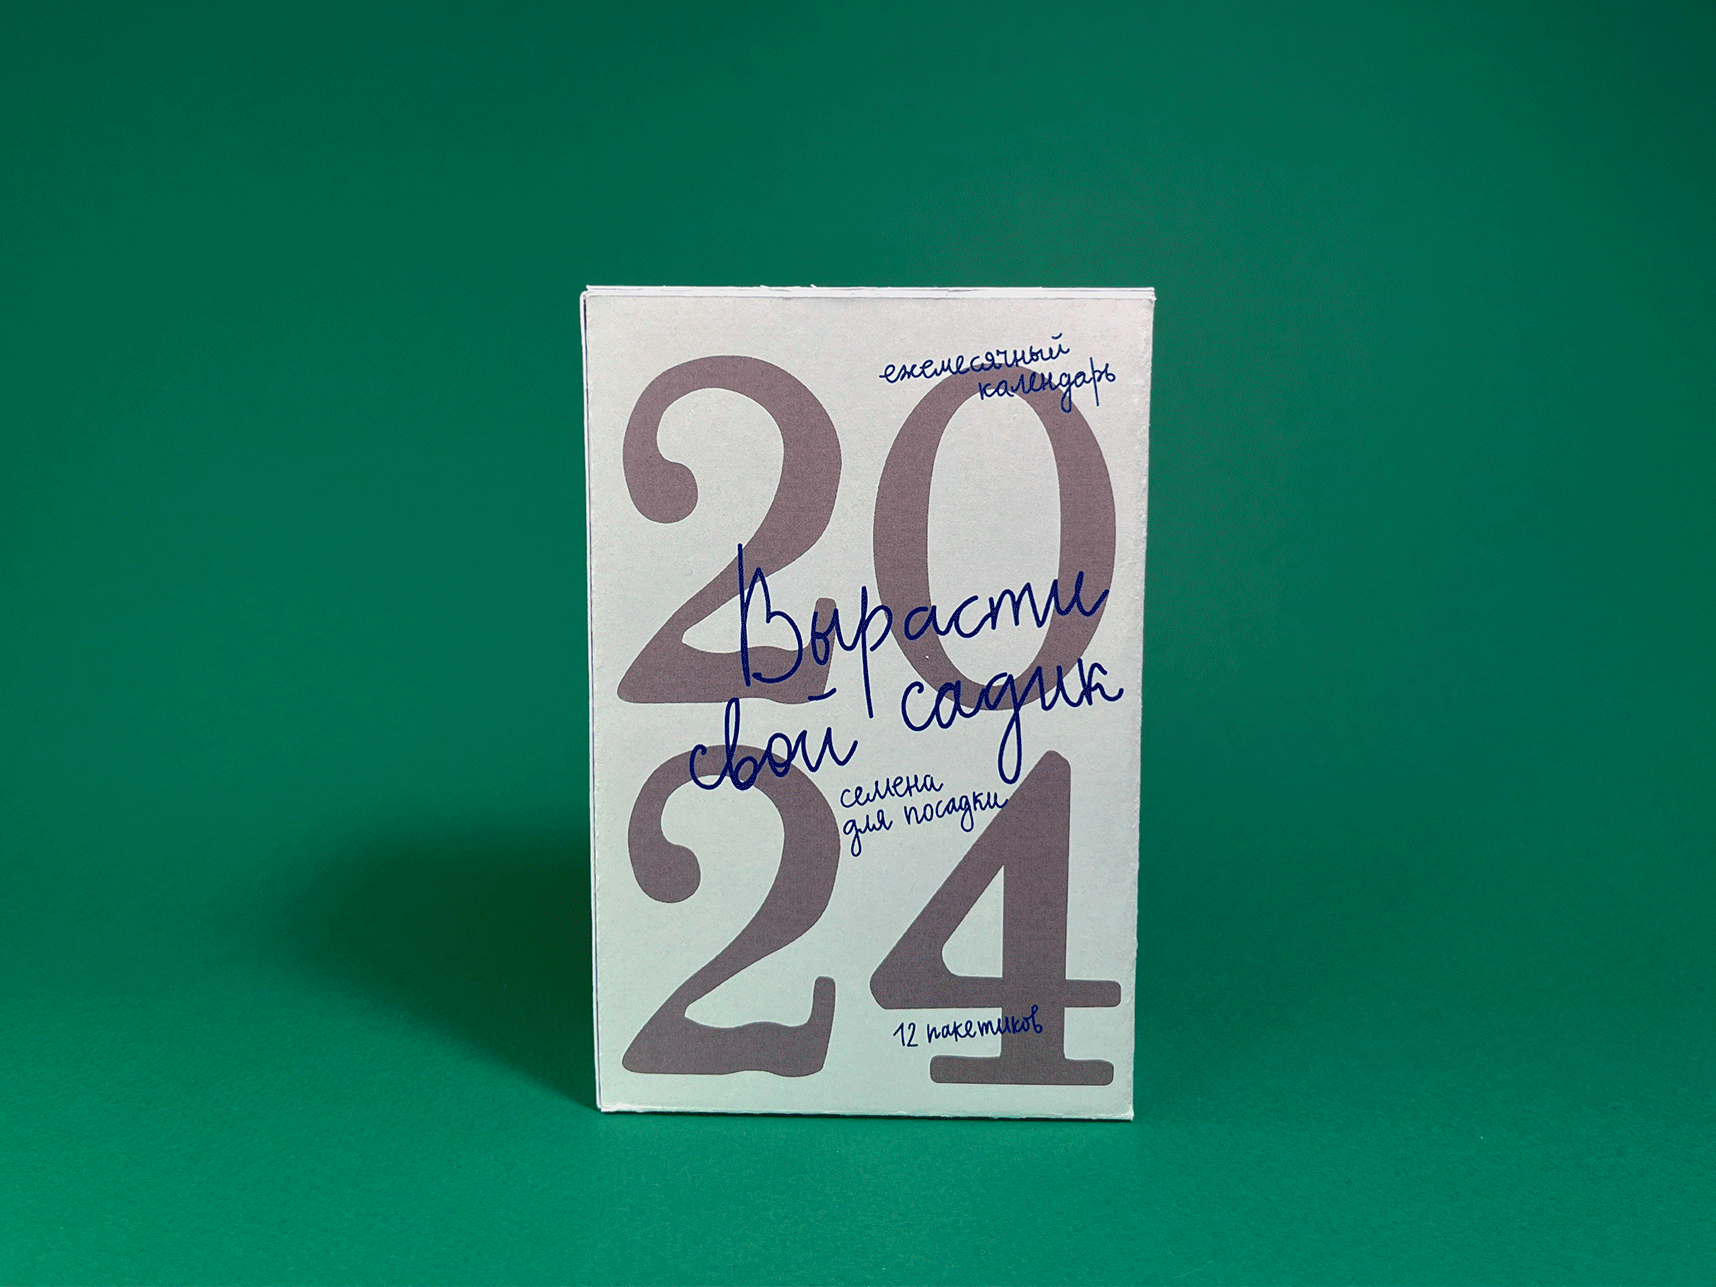 20
ежемесячный
календарь
Вырасти
свой садик
24
семена
для посадки
12 пакетиков